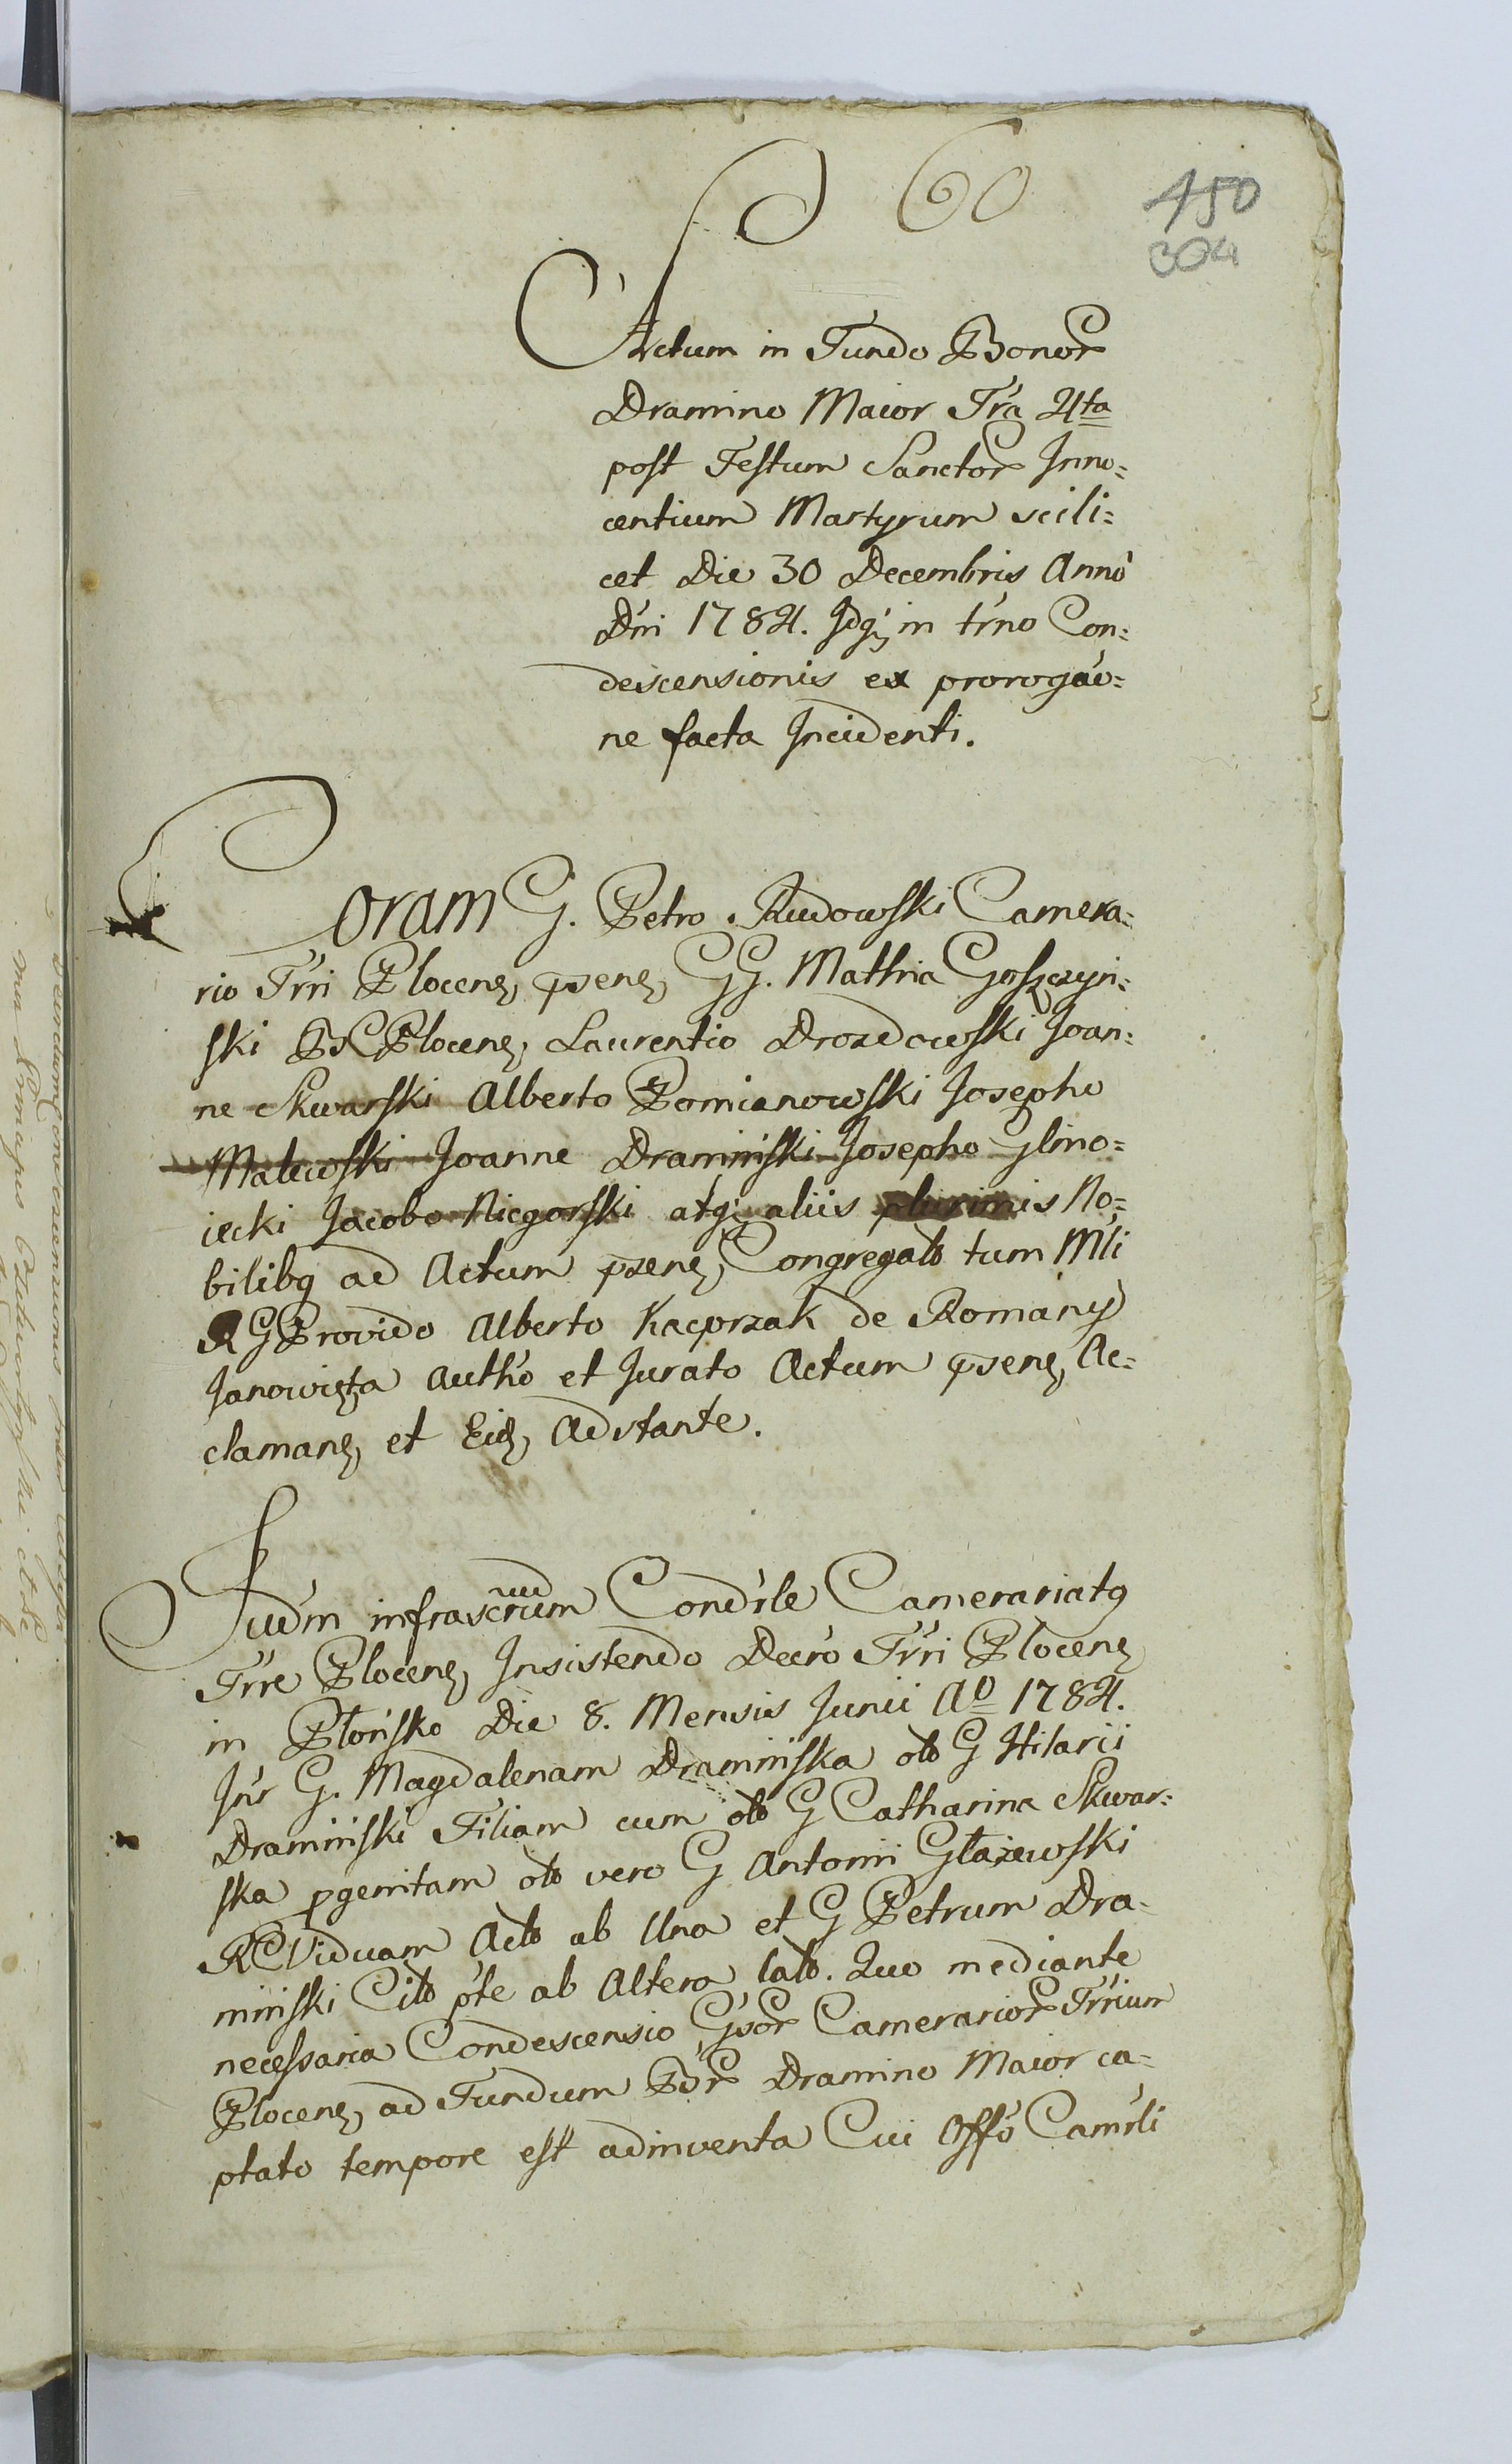 60
150
304
Actum in Fundo Bonor
Dramino Maior Fra 4ta
post Festum Sanctor Inno=
centium Martyrum scili=
cet Die 30 Decembris Anno
Dni 1784. Idq; in trno Con=
descensionis ex prorogao=
ne facta Incidenti.
Coram G. Petro Rudowski Camera=
rio Trri Plocens, psens, GG. Mathia Goszczyń=
ski BC Plocens, Laurentio Drozdowski Joan=
ne Skwarski Alberto Pomianowski Josepho
Malewski Joanne Dramiński Josepho Glino=
iecki Jacobo Niegorski atq; aliis plurimis No=
bilibq ad Actum psens, Congregatis tum Mli
RG Provido Alberto Kacprzak de Romany
Janowięta autho et Jurato Actum psens, Ac=
clamans, et Eid, Adstante.
Judm infrascrum Condsle Camerariatq
Trre Plocens, Insistendo Decro Trri Plocens
in Płońsko Die 8. Mensis Junii Ao 1784.
Inr G. Magdalenam Dramińska olo G Hilarii
Dramiński Filiam cum olo G Catharina Skwar=
ska pgenitam olo vero G Antonii Głazewski
RC Viduam Acto ab Una et G Petrum Dra=
miński Cito pte ab Altera lato. Quo mediante
necessaria Condescensio Gsor Camerarior Trrium
Plocens, ad Fundum Bdr Dramino Maior ca=
ptato tempore est adinventa Cui Offo Camrli